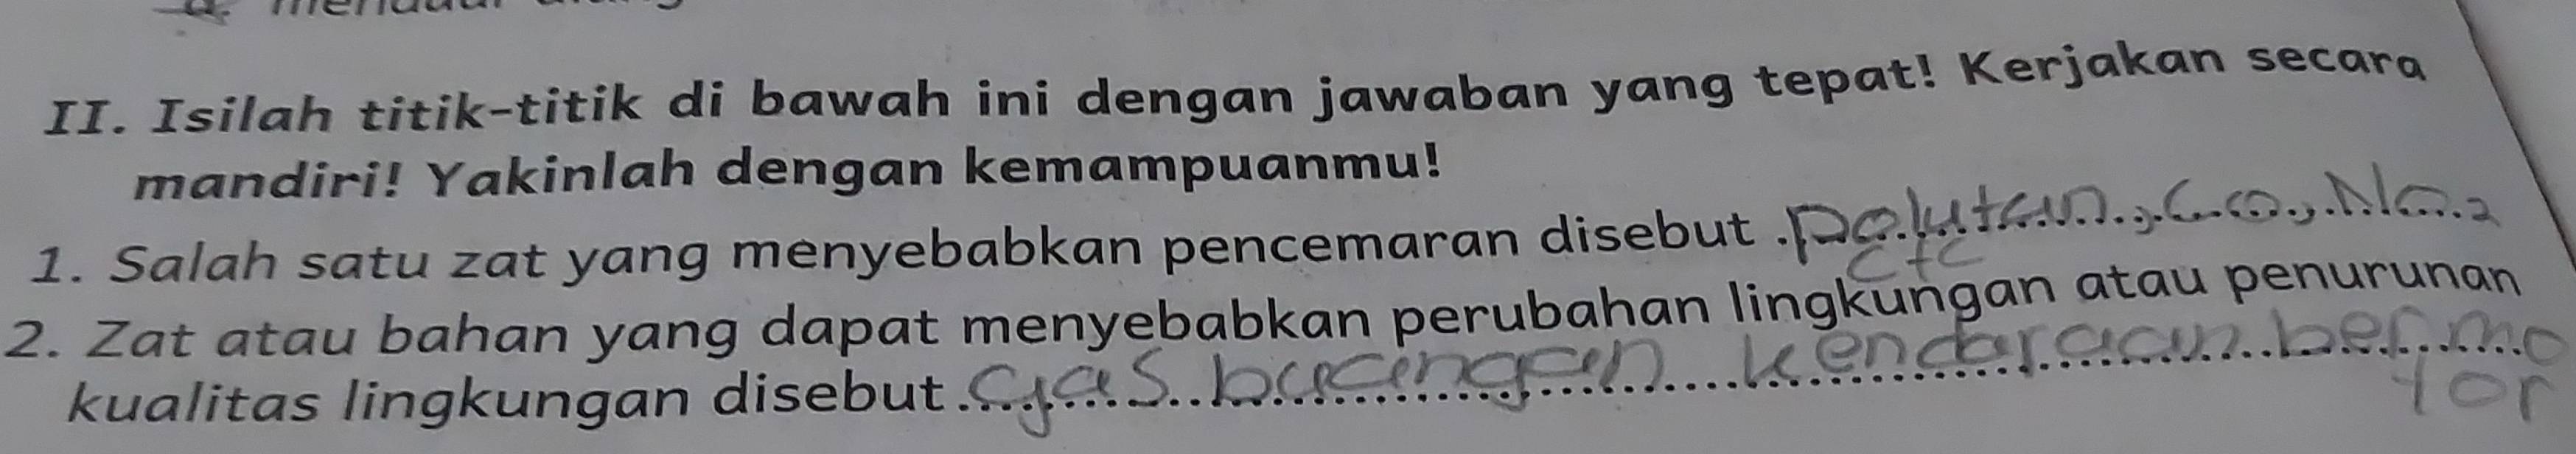 II. Isilah titik-titik di bawah ini dengan jawaban yang tepat! Kerjakan secara
mandiri! Yakinlah dengan kemampuanmu!
1. Salah satu zat yang menyebabkan pencemaran disebut polutan, CO, NO2
CFC
2. Zat atau bahan yang dapat menyebabkan perubahan lingkungan atau penurunan
kualitas lingkungan disebut gas buangan kendaraan bermo
tor